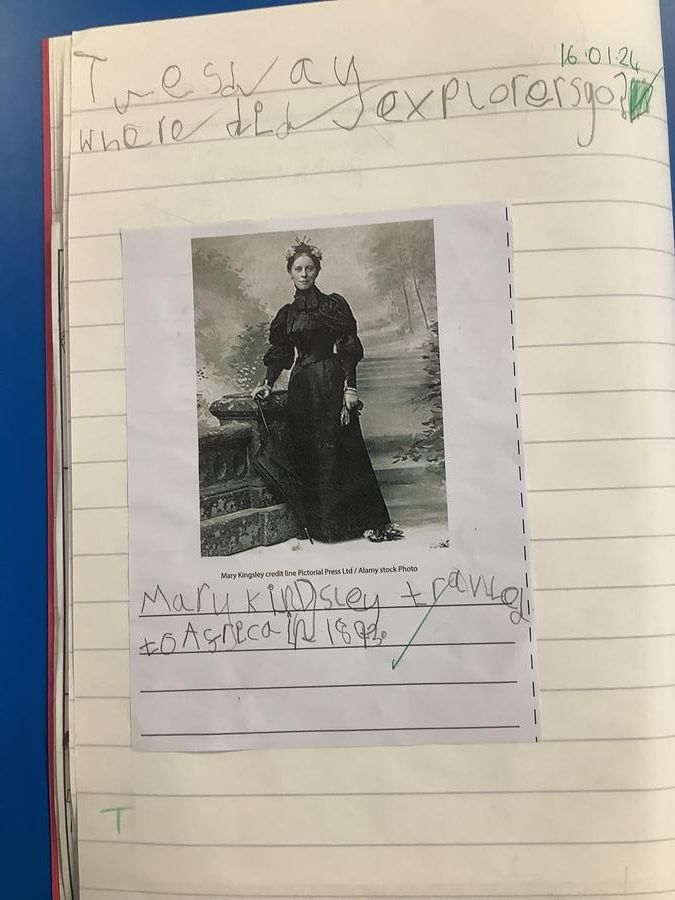 Tuesday 16.01.24
where did explorers go?
Mary Kingsley credit line Pictorial Press Ltd / Alamy stock Photo
Mary kinDsley travled
to Afreca in 1893.
T